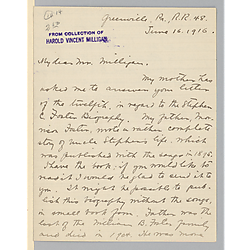 Greenville, Pa., R.R. 48.
June 16, 1916.
FROM COLLECTION OF
HAROLD VINCENT MILLIGAN
My dear Mr. Milligan.
My mother has
asked me to answer your letter
of the twelfth, in regard to the Stephen
C. Foster Biography. My father, Mor-
rison Foster, wrote a rather complete
story of Uncle Stephen's life, which
was published with the songs in 1896.
I have the book, if you would like to
read it I would be glad to send it to
you. It might be possible to pub-
lish this biography without the songs,
in small book form. Father was the
last of the William B. Foster family
and died in 1904. He was more